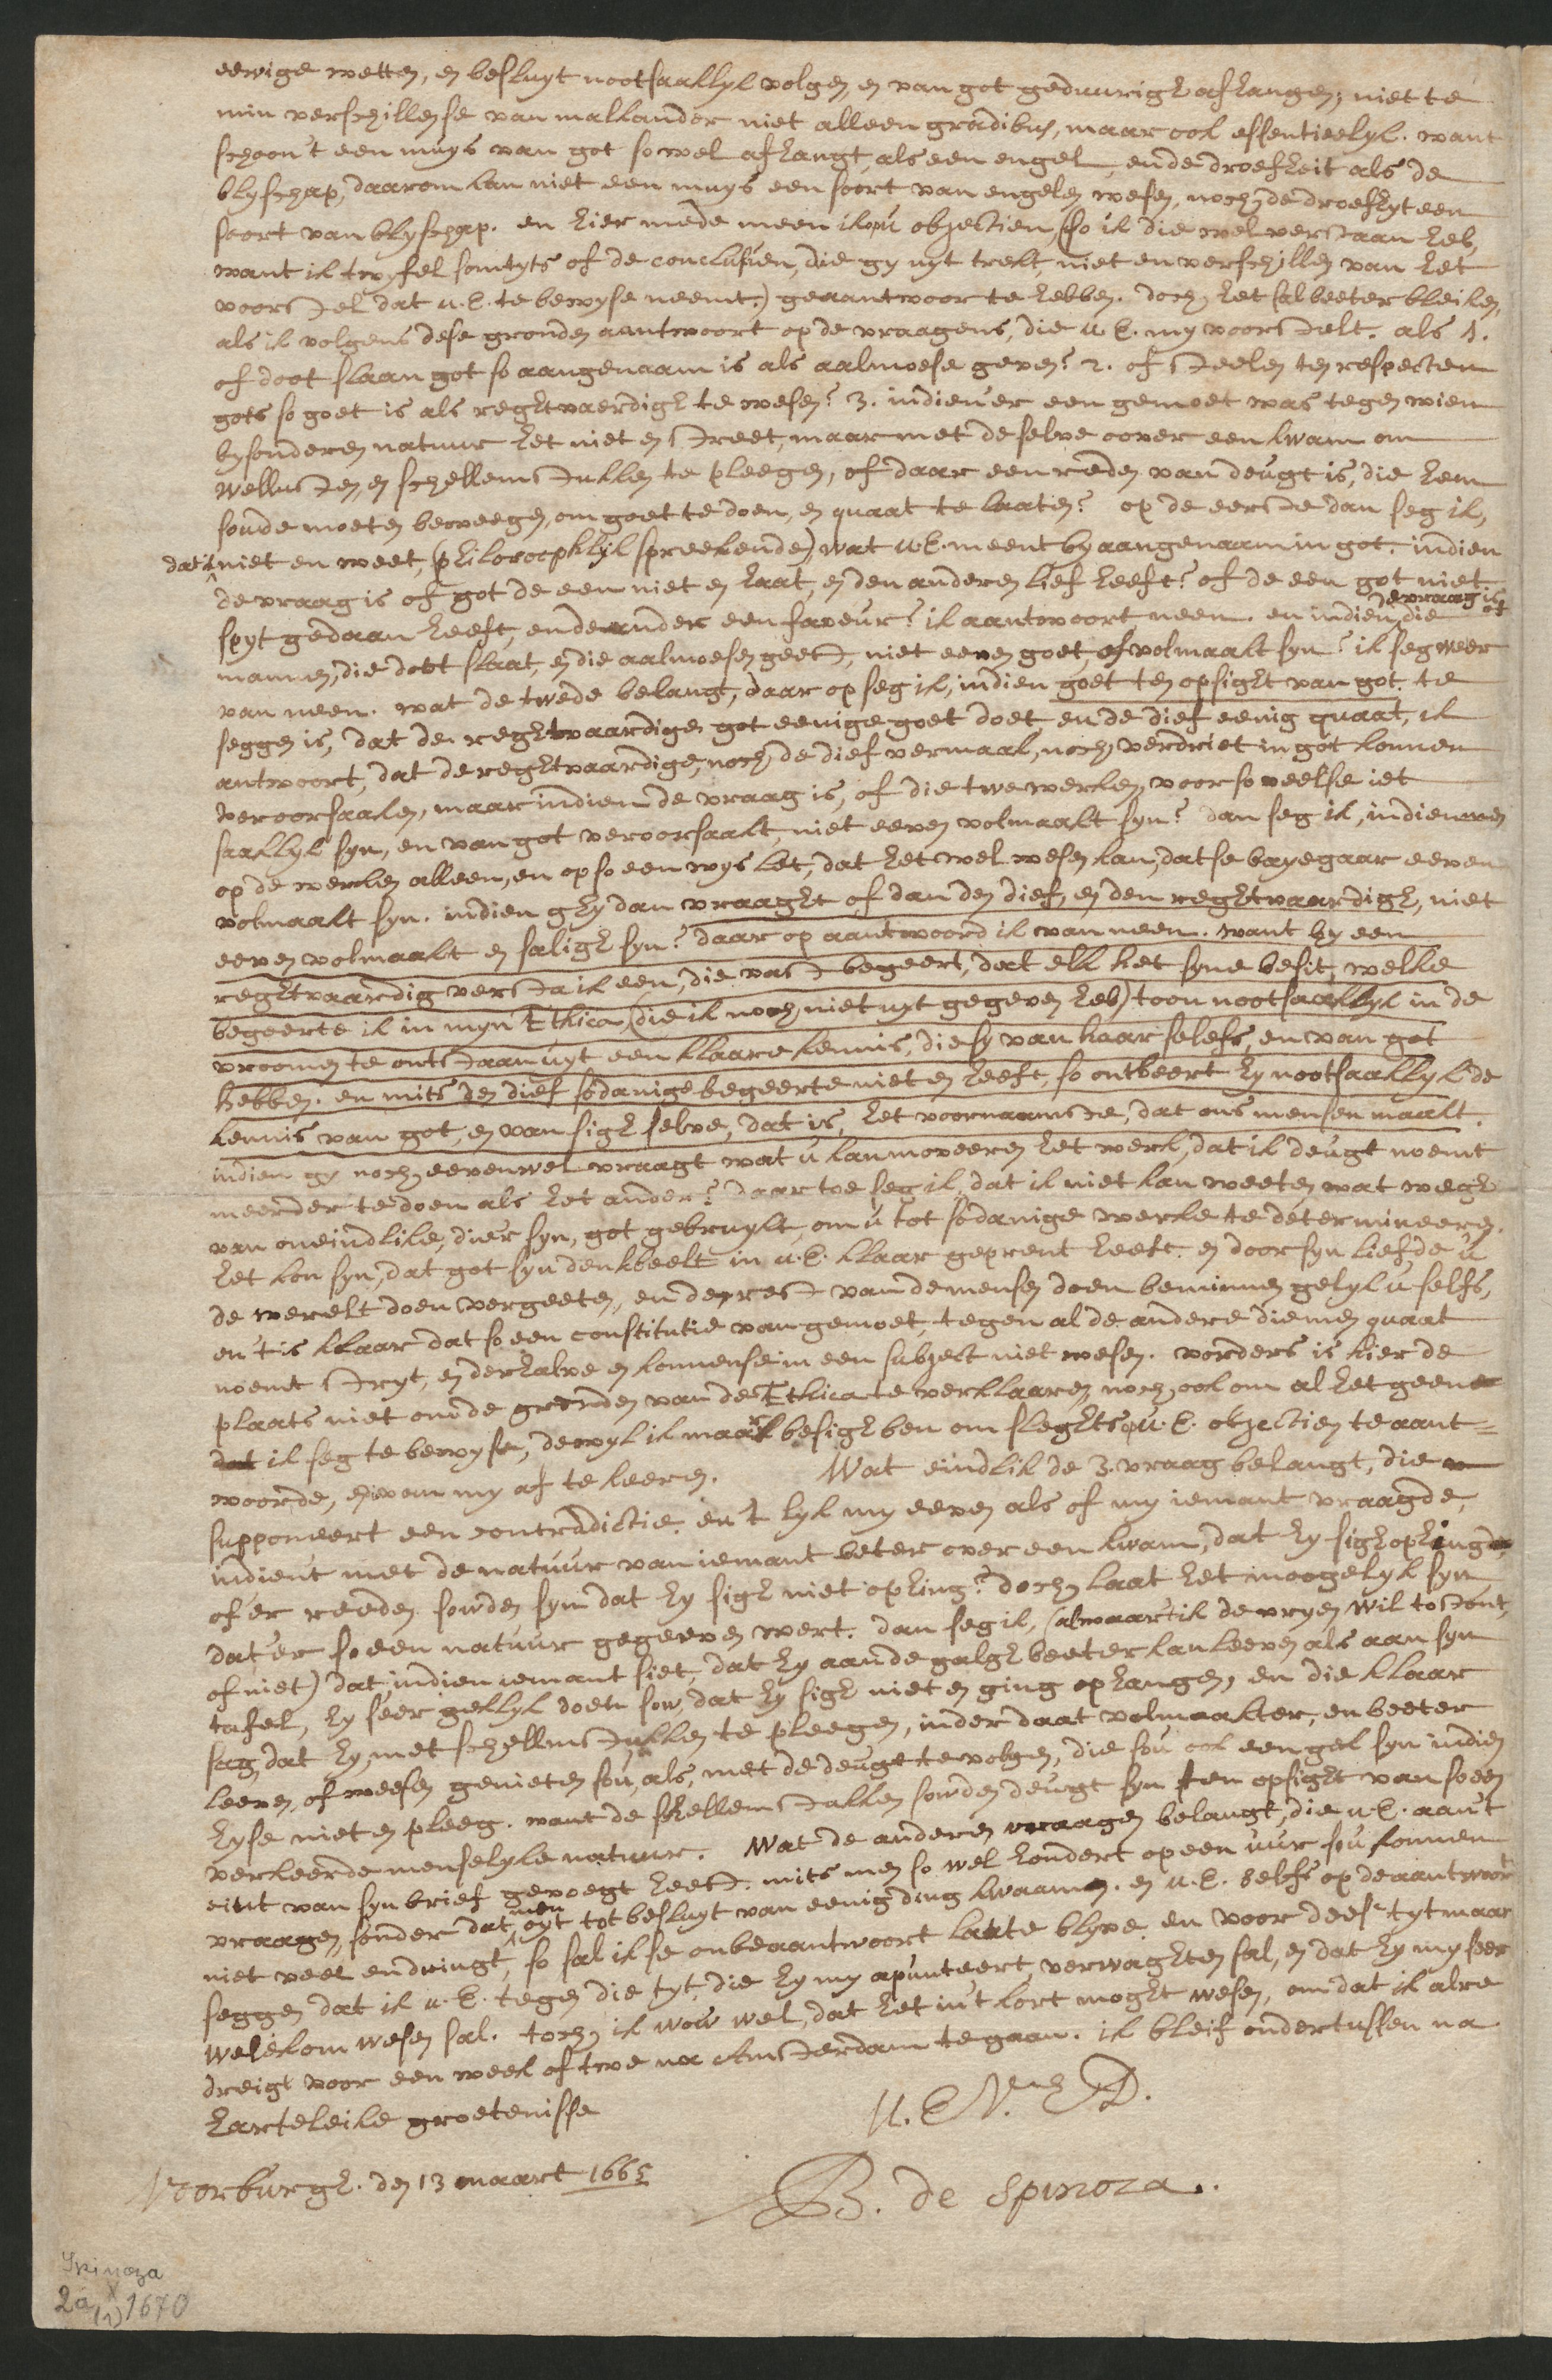 eewige wetten, en besluyt nootsaaklyk volgen, en van got geduurigh afhangen; niet te
min verschillense van malkander niet alleen gradibus, maar ook essentieelyk. want
schoon't een muys van got so wel afhangt, als een engel, en de droefheit als de
blyschap, daarom kan niet een muys een soort van engelen wesen, noch de droefhyt een
soort van blyschap. en hier mede meen ik op u objectien, (so ik die wel verstaan heb,
want ik twyfel somtyts of de conclusien, die gy uyt trekt, niet en verschillen van het
voorstel dat u.E. te bewyse neemt,) geaantwoort te hebben. doch het sal beeter bleiken,
als ik volgens dese gronden aantwoort op de vraagens, die u.E. my voorstelt. als 1.
of doot slaan got so aangenaam is als aalmoese geven? 2. of steelen ten respecten
gots so goet is als reghtvaerdigh te wesen? 3. indien'er een gemoet was tegen wien
bysonderen natuur het niet en street, maar met deselve oover een kwam om
wellusten, en schellemstukken te pleegen, of daar een reden van deugt is, die hem
soude moeten beweegen, om goet te doen, en quaat te laaten? op de eerste dan seg ik,
dat ik niet en weet, (philosoophlijk spreekende) wat u.E. meent by aangenaam in got. indien
de vraag is of got de een niet en haat, en den anderen lief heeft? of de een got niet
spyt gedaan heeft, en de ander een faveur? ik aantwoort neen. en indien de vraag is of die
mannen, die doot slaat, en die aalmoesen geeft, niet eeven goet, of volmaakt syn? ik seg weer
van neen. wat de twede belangt, daar op seg ik, indien goet ten opsight van got te
seggen is, dat de reghtvaardige got eenige goet doet en de dief eenig quaat, ik
antwoort, dat de reghtvaardige, noch de dief vermaak, noch verdriet in got konnen
veroorsaaken, maar indien de vraag is, of die twe werken, voor so veelse iet
saaklyk syn, en van got veroorsaakt, niet eeven volmaakt syn? dan seg ik, indien wen
op de werken alleen, en op so een wys let, dat het wel wesen kan, datse bayegaar eeven
volmaakt syn. indien ghy dan vraaght of dan den dief, en den reghtvaardigh, niet
eeven volmaakt en saligh syn? daar op aantwoord ik van neen. want by een
reghtvaardig versta ik een, die vast begeert, dat elk het syne besit, welke
begeerte ik in myn Ethica, (die ik noch niet uyt gegeven heb) toon nootsaaklyk in de
vroomen te ontstaan uyt een klaare kennis, die sy van haar selefs, en van got
hebben. en mits den dief sodanige begeerte niet en heeft, so ontbeert hy nootsaaklyk de
kennis van got, en van sigh selve, dat is, het voornaamste, dat ons mensen maakt.
indien gy noch eevenwel vraagt wat u kan moveeren het werk, dat ik deugt noemt
meerder te doen als het ander? daar toe seg ik, dat ik niet kan weeten wat wegh
van oneindlike, dier syn, got gebruykt, om u tot sodanige werke te determineeren.
het kon syn, dat got syn denkbeelt in u.E. klaar geprent heeft. en door syn liefde u
de werelt doen vergeeten, en de rest van de mensen doen beminnen gelyk u selfs,
en't is klaar dat so een constitutie van gemoet, tegen al de andere diemen quaat
noemt stryt, en derhalve en konnense in een subject niet wesen. vorders is hier de
plaats niet om de gronden van de Ethica te verklaaren noch ook om al het geene
dat ik seg te bewyse, dewyl ik maar besigh ben om sleghts op u.E. objectien te aant=
woorde, en van my af te keeren. Wat eindlik de 3. vraag belangt, die
supponeert een contradictie. en't lyk my eeven als of my iemant vraagde,
indien't met de natuur van iemant beter over een kwam, dat hy sigh ophing
of er reeden souden syn dat hy sigh niet op hing? doch laat het moogelyk syn
dat'er so een natuur gegeeven wert. dan seg ik, (al waar't ik de vryen wil tostont,
of niet) dat, indien iemant siet, dat hy aan de galgh beeter kan leeven als aan syn
tafel, hy seer gekkyk doen sow, dat hy sigh niet en ging op hangen, en die klaar
sag, dat hy, met schellmstukken te pleegen, inder daat volmaakter, en beeter
leeven, of weesen genieten sou, als, met de deugt te volgen, die sou ook een gek syn indien
hyse niet en pleeg. want de schellemstukken souden deugt syn ten opsight van so een
verkeerde menselyke natuur. Wat de anderen vraagen belangt, die u.E. aan't
eint van syn brief gevoegt heeft. mits men so wel hondert op een uur sou konnen
vraagen, sonder dat men oyt tot besluyt van eenig ding kwaamen. en u.E. selefs op de aantwoort
niet veel en dringt, so sal ik se onbeaantwoort laate blyve. en voor deese tyt maar
seggen dat ik u.E. tegen die tyt, die hy my apunteert, verwaghten sal, en dat hy my seer
welekom wesen sal. toch ik wow wel, dat het in't kort moght wesen, om dat ik alre
dreigt voor een week of twe na Amsterdam te gaan. ik bleif ondertussen na
harteleike groetenisse
U.E. V. en D.
Voorburgh. den 13 maart 1665
B. de Spinoza.
Spinoza
2a (1) 1670